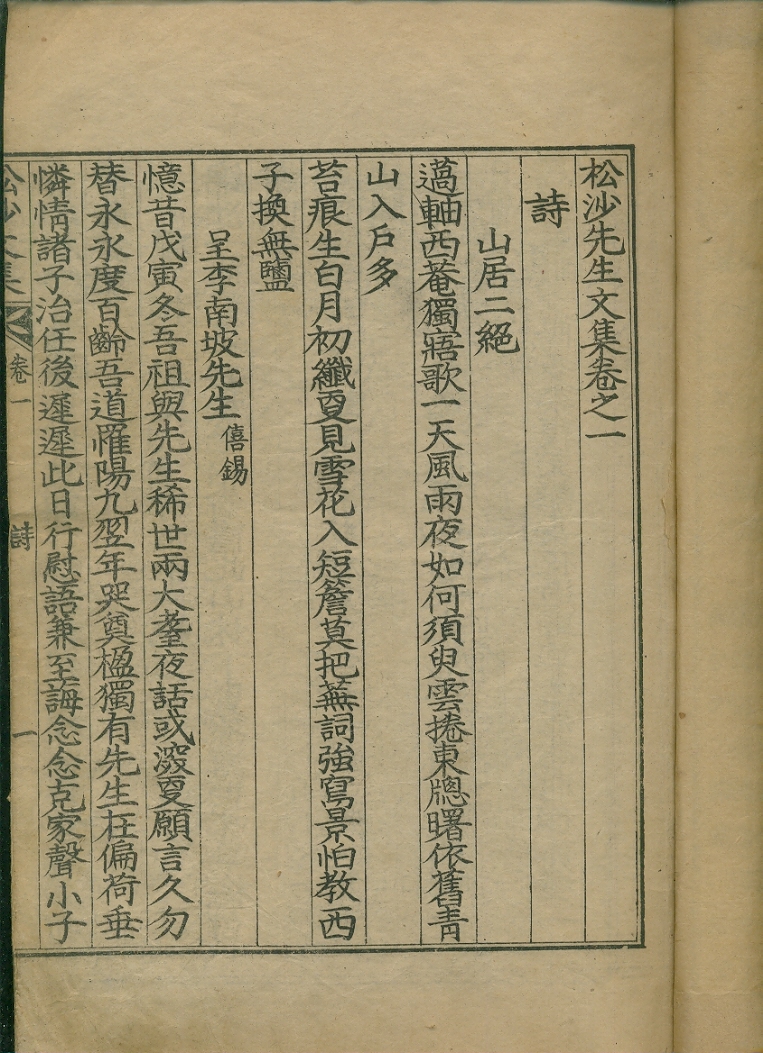 松沙先生文集卷之一
詩
山居二絕
薖軸西菴獨寤歌一天風雨夜如何須臾雲捲東牕曙依舊靑
山入戶多
苔痕生白月初纖夏見雪花入短簷莫把蕪詞強寫景怕敎西
子換無鹽
呈李南坡先生 僖錫
憶昔戊寅冬吾祖與先生稀世兩大耋夜話或潑夏願言久勿
替永永度百齡吾道罹陽九翌年哭奠楹獨有先生在偏荷垂
憐情諸子治任後遲遲此日行慰語兼至誨念念克家聲小子
松沙文集 卷一 詩 一